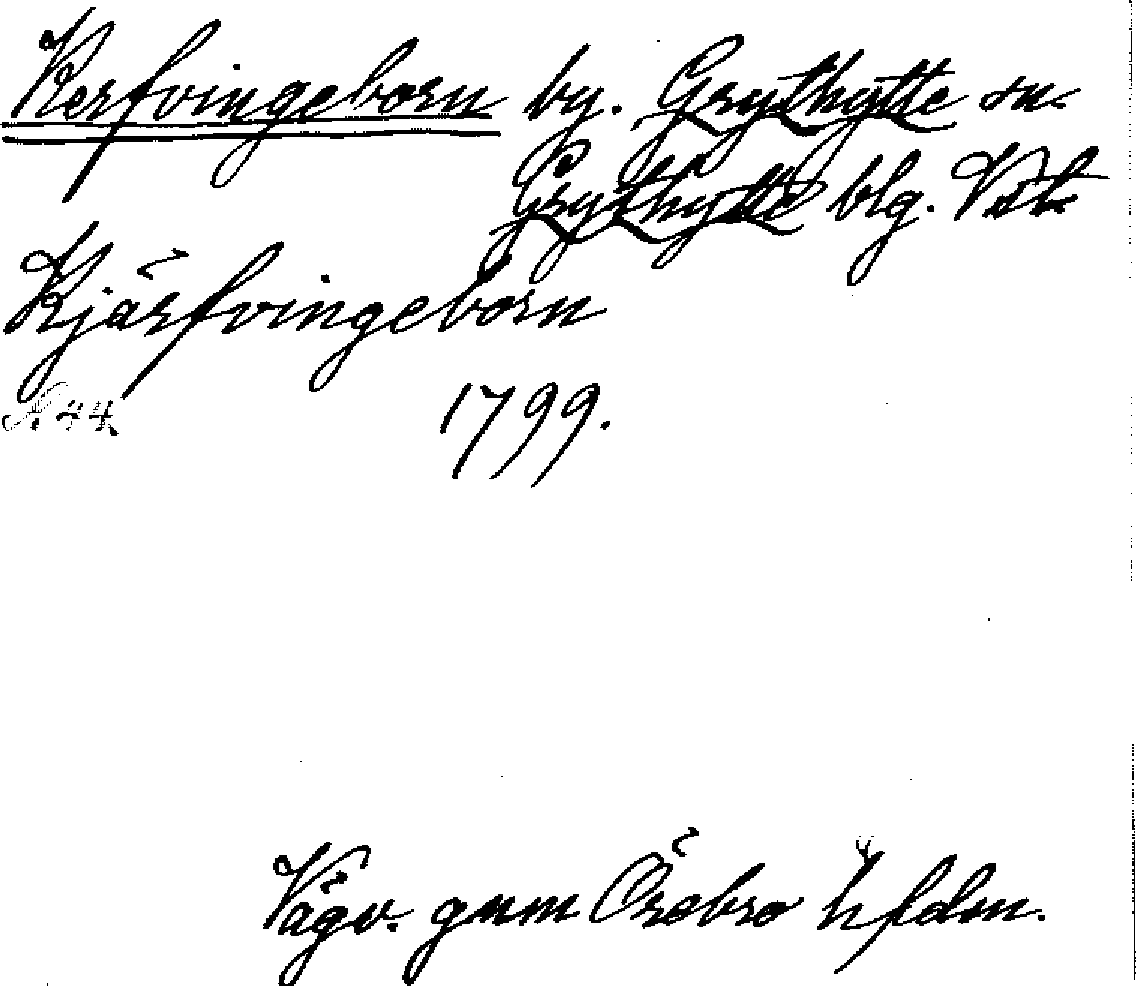 Kerfvingeborn by. Grythytte sn.
Grythytte blg. Vstm
Kjärfvingeborn
A 44 1799.
Vägv. gnm Örebro h fdm.